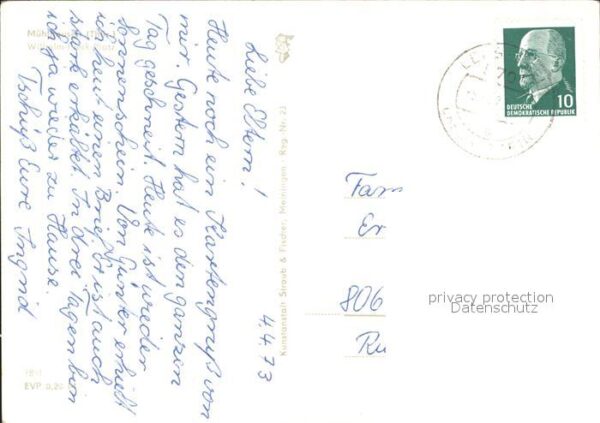 4.4.73
Liebe Eltern!
Heute noch ein Kartengruß von
mir. Gestern hat es den ganzen
Tag geschneit. Heute ist wieder
Sonnenschein. Von Günter erhielt
ich heut einen Brief. Er ist auch
stark erkältet. In drei Tagen bin
ich ja wieder zu Hause.
Tschüß Eure Ingrid
EVP 0,20
Kunstanstalt Straub & Fischer, Meiningen Reg.-Nr. 23
DEUTSCHE
DEMOKRATISCHE REPUBLIK
10
Fam
Er
806
Ru
privacy protection
Datenschutz